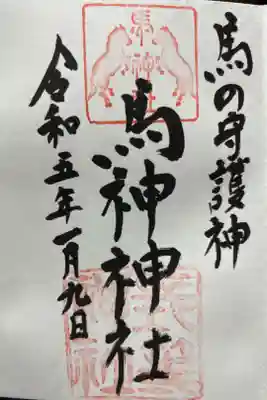 馬の守護神
馬神
馬神神社
令和五年一月九日